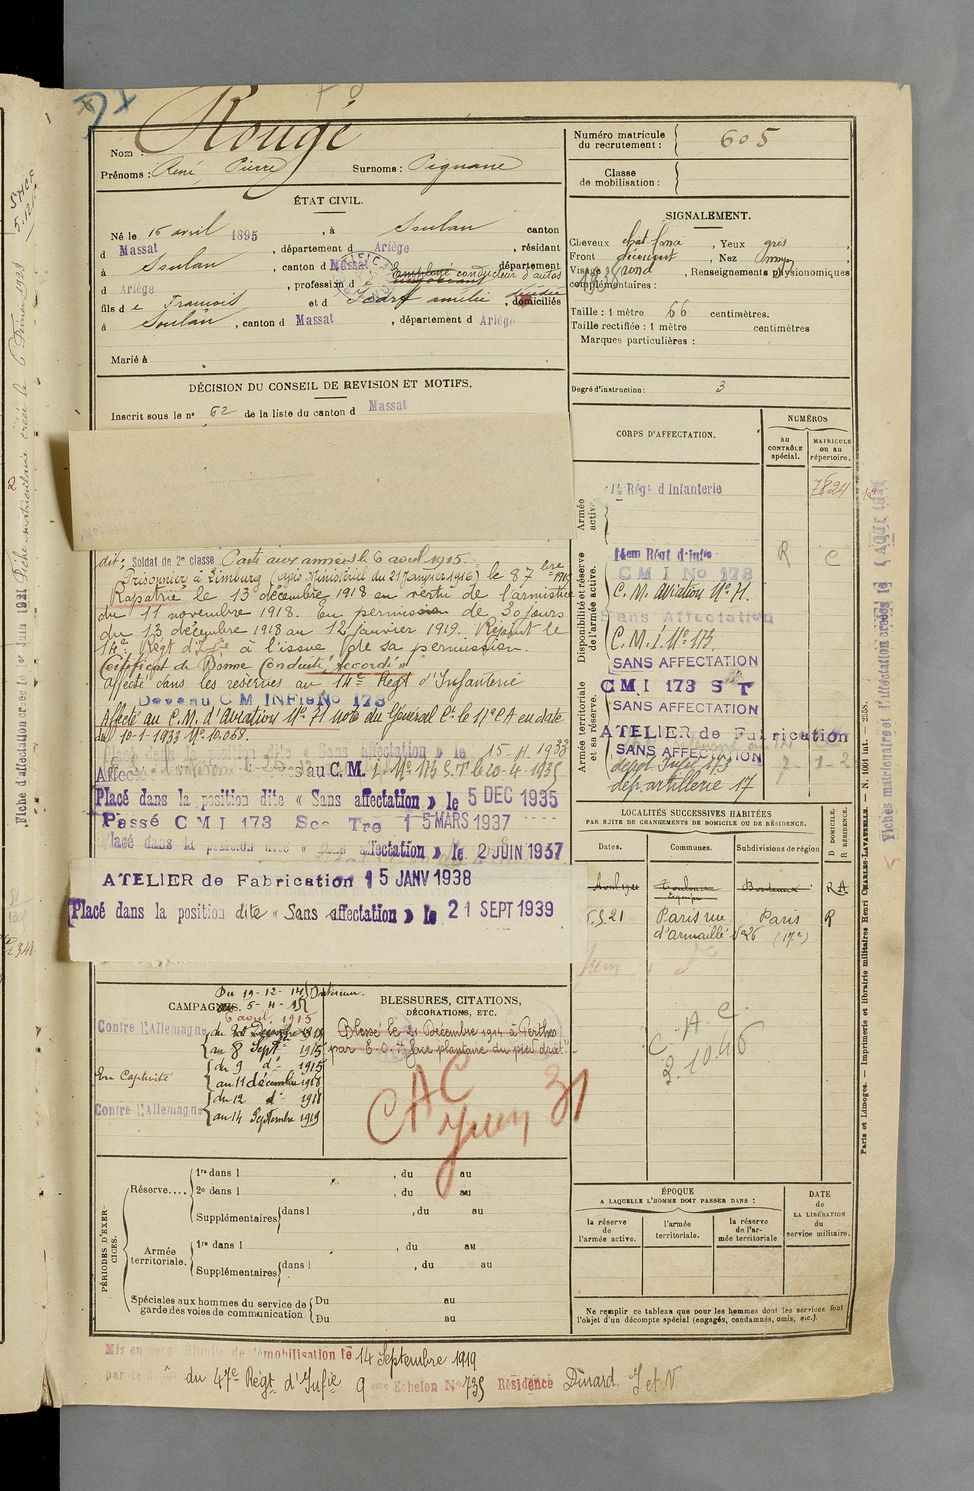 Rougé
Nom :
Prénoms : René, Pierre Surnoms : Pignane
Numéro matricule du recrutement : 605
Classe de mobilisation :
ÉTAT CIVIL.
Né le 16 avril 1895, à Soulan canton
d Massat, département d Ariège, résidant
à Soulan, canton d Massat département
d Ariège, profession d e conducteur d'autos
fils d e François et d Amélie décédée domiciliés
à Soulan, canton d Massat, département d Ariège
Marié à
SIGNALEMENT.
Cheveux chat. foncé, Yeux gris,
Front découvert, Nez moyen,
Visage rond, Renseignements physionomiques
complémentaires :
Taille : 1 mètre 66 centimètres.
Taille rectifiée : 1 mètre centimètres
Marques particulières :
Degré d'instruction : 3
DÉCISION DU CONSEIL DE REVISION ET MOTIFS.
Inscrit sous le n° 62 de la liste du canton d Massat
dit: Soldat de 2e classe Parti aux armées le 6 avril 1915.
Prisonnier à Limburg (avis Ministériel du 21 janvier 1916) le 8 7bre 1915
Rapatrié le 13 décembre 1918 en vertu de l'armistice
du 11 novembre 1918. En permission de 30 jours
du 13 décembre 1918 au 12 janvier 1919. Rejoint le
14e Régt d'Infie à l'issue de sa permission.
Certificat de Bonne Conduite "Accordé"
Affecté dans les réserves au 14e Régt d'Infanterie
Devenu C M INFie No 173
Affecté au C.M. d'Aviation No 71 note du Général Ct le 17e CA en date
du 10-1-1933 No 10.068.
Placé dans la position dite « Sans affectation » le 15-11-1933
Affecté au C.M.I. No 173 S.T le 20-4-1935
Placé dans la position dite « Sans affectation » le 5 DEC 1935
Passé C M I 173 Sec Tre 1 5 MARS 1937
Placé dans la position dite « Sans affectation » le 2 JUIN 1937
ATELIER de Fabrication 15 JANV 1938
Placé dans la position dite « Sans affectation » le 21 SEPT 1939
CORPS D'AFFECTATION.
NUMÉROS
au CONTRÔLE spécial.
MATRICULE ou au répertoire.
Armée active.
14 Régt d'Infanterie 7824
Disponibilité et réserve de l'armée active.
14em Régt d'Infie R
C M I No 173
C. M. Aviation No 71.
Sans Affectation
C.M.I. No 173
SANS AFFECTATION
Armée territoriale et sa réserve.
CMI 173 S T
SANS AFFECTATION
ATELIER de Fabrication
SANS AFFECTATION
dépôt Infie 173
dép. artillerie 17
LOCALITÉS SUCCESSIVES HABITÉES
PAR SUITE DE CHANGEMENTS DE DOMICILE OU DE RÉSIDENCE.
Dates. Communes. Subdivisions de région D DOMICILE. R RÉSIDENCE.
Avril 1920 Toulouse Bordeaux R A
5.21 Paris rue d'Armaillé No 26 Paris (17e) R
C.A.C.
2.10.46
CAMPAGNES.
Du 19-12-14 Intérieur.
5-4-15
6 avril 1915
Contre l'Allemagne
au 8 Sept 1915
En Captivité du 9 do 1915
au 11 décembre 1918
Contre l'Allemagne du 12 do 1918
au 14 Septembre 1919
BLESSURES, CITATIONS,
DÉCORATIONS, ETC.
Blessé le 21 Décembre 1914 à Perthes
par E.O. face plantaire du pied droit
CAC
Juin 31
PÉRIODES D'EXERCICES.
Réserve.... 1re dans l , du au
2e dans l , du au
Supplémentaires dans l , du au
Armée territoriale. 1re dans l , du au
Supplémentaires dans l , du au
Spéciales aux hommes du service de garde des voies de communication. Du au
Du au
ÉPOQUE
A LAQUELLE L'HOMME DOIT PASSER DANS :
la réserve de l'armée active.
l'armée territoriale.
la réserve de l'armée territoriale
DATE DE LA LIBÉRATION du service militaire.
Ne remplir ce tableau que pour les hommes dont les services font
l'objet d'un décompte spécial (engagés, condamnés, omis, etc.).
Mis en congé illimité de démobilisation le 14 Septembre 1919
par le dépôt du 47e Régt d'Infie 9 eme Echelon No 735 Résidence Dinard. I et V
Paris et Limoges. — Imprimerie et librairie militaires Henri CHARLES-LAVAUZELLE. — N. 1001 int. — 2558.